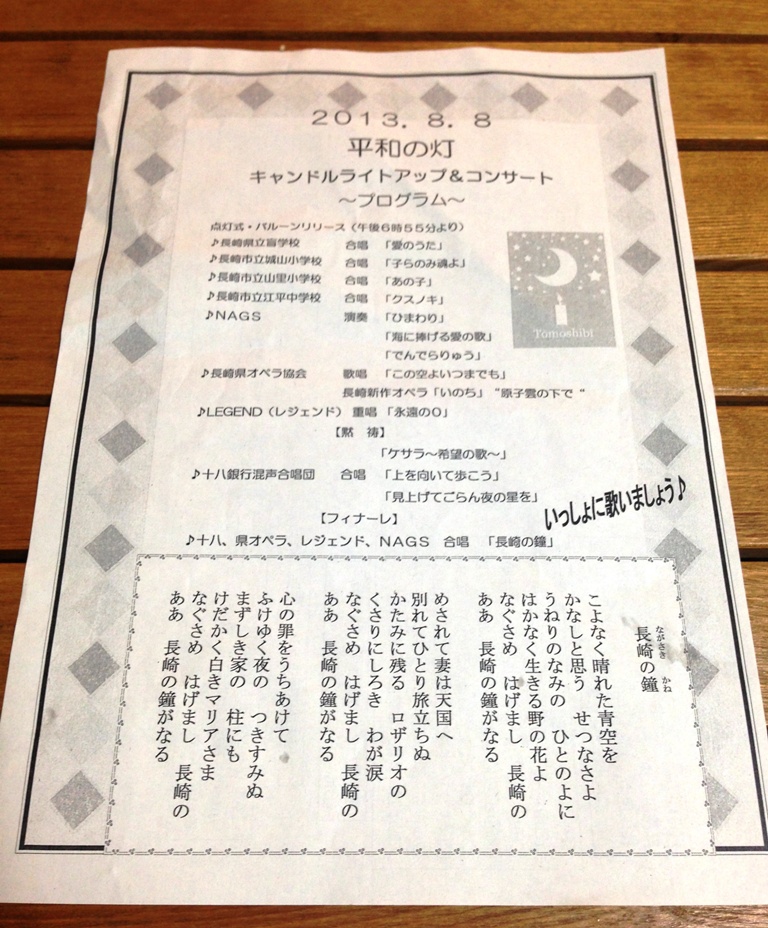 2013. 8. 8
平和の灯
キャンドルライトアップ&コンサート
~プログラム~
点灯式・バルーンリリース(午後6時55分より)
♪長崎県立盲学校 合唱 「愛のうた」
♪長崎市立城山小学校 合唱 「子らのみ魂よ」
♪長崎市立山里小学校 合唱 「あの子」
♪長崎市立江平中学校 合唱 「クスノキ」
♪NAGS 演奏 「ひまわり」
「海に捧げる愛の歌」
「でんでらりゅう」
Tomoshibi
♪長崎県オペラ協会 歌唱 「この空よいつまでも」
長崎新作オペラ「いのち」 “原子雲の下で“
♪LEGEND(レジェンド) 重唱 「永遠の0」
【黙 祷】
「ケサラ~希望の歌~」
♪十八銀行混声合唱団 合唱 「上を向いて歩こう」
「見上げてごらん夜の星を」
いっしょに歌いましょう♪
【フィナーレ】
♪十八、県オペラ、レジェンド、NAGS 合唱 「長崎の鐘」
長崎の鐘
ながさき かね
こよなく晴れた青空を
かなしと思う せつなさよ
うねりのなみの ひとのよに
はかなく生きる野の花よ
なぐさめ はげまし 長崎の
ああ 長崎の鐘がなる
めされて妻は天国へ
別れてひとり旅立ちぬ
かたみに残る ロザリオの
くさりにしろき わが涙
なぐさめ はげまし 長崎の
ああ 長崎の鐘がなる
心の罪をうちあけて
ふけゆく夜の つきすみぬ
まずしき家の 柱にも
けだかく白きマリアさま
なぐさめ はげまし 長崎の
ああ 長崎の鐘がなる